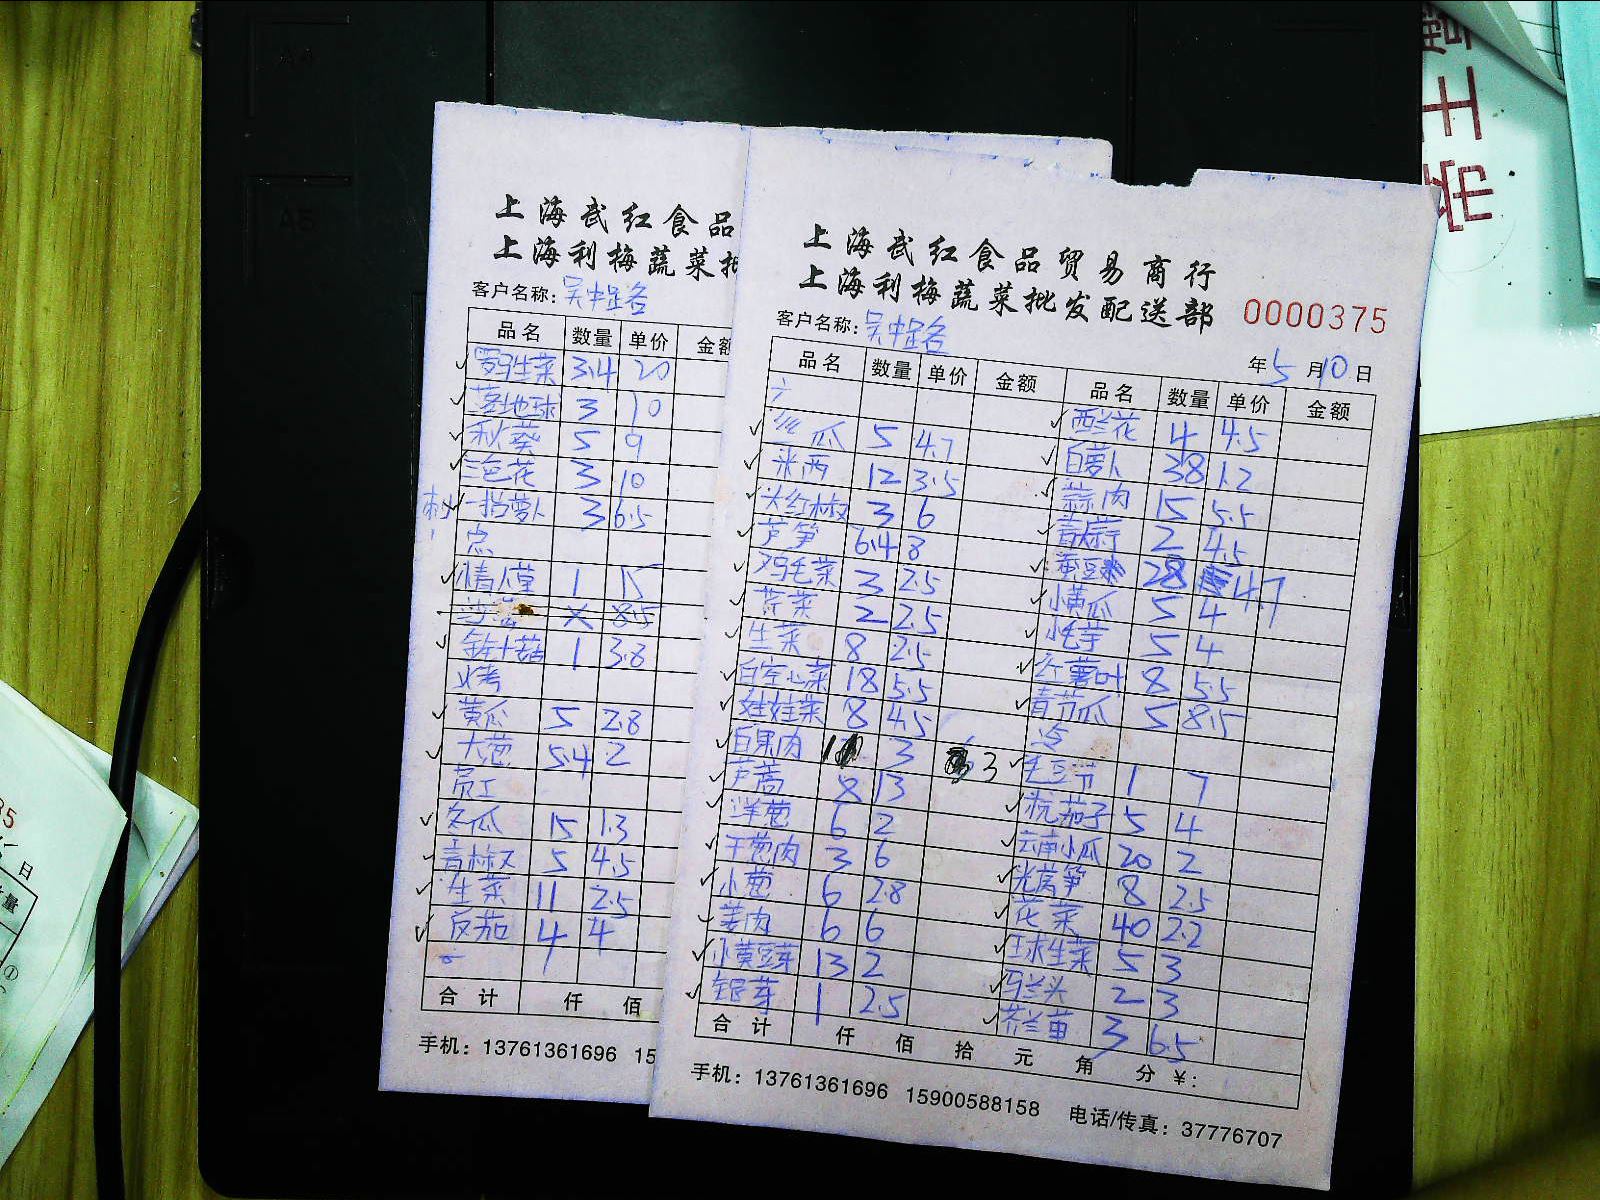 上海武红食品
上海利梅蔬菜批
客户名称：吴中路名
品名 数量 单价 金额
罗马生菜 3.4 20
落地球 3 10
秋葵 5 9
三色花 3 10
一指萝卜 3 6.5
点
情人草 1 15
8.5
1 3.8
火考
黄瓜 5 2.8
大葱 5.4 2
员工
冬瓜 15 1.3
青椒 5 4.5
生菜 11 2.5
反茄 4 4
合计 仟 佰
手机：13761361696 15
上海武红食品贸易商行
上海利梅蔬菜批发配送部
0000375
客户名称：吴中路名
年5月10日
品名 数量 单价 金额 品名 数量 单价 金额
西兰花 4 4.5
丝瓜 5 4.7 白萝卜 38 1.2
米西 12 3.5 蒜肉 15 5.5
大红椒 3 6 青麻 2 4.5
芦笋 6.4 8 28 4.7
鸡毛菜 3 2.5 小黄瓜 5 4
2 2.5 小毛芋 5 4
生菜 8 2.5 红薯叶 8 5.5
白空心菜 18 5.5 青节瓜 5 8.5
娃娃菜 8 4.5 冷
白果肉 1 3 3 毛豆节 1 7
芦蒿 8 13 杭茄子 5 4
洋葱 6 2 云南小瓜 20 2
干葱肉 3 6 光莴笋 8 2.5
小葱 6 2.8 花菜 40 2.2
姜肉 6 6 球生菜 5 3
小黄豆芽 13 2 马兰头 2 3
银芽 1 2.5 芥兰苗 3 6.5
合计 仟 佰 拾 元 角 分 ￥：
手机：13761361696 15900588158 电话/传真：37776707